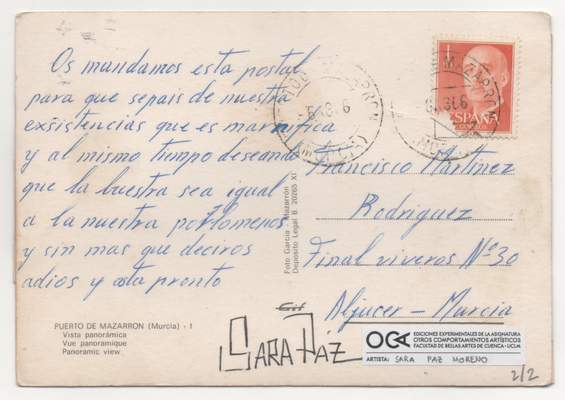 Os mandamos esta postal
para que sepais de nuestra
exsistencias que es marnifica
y al mismo tiempo deseando
que la buestra sea igual
a la nuestra porlomenos
y sin mas que deciros
adios y asta pronto
PUERTO DE MAZARRON (Murcia) - 1
Vista panorámica
Vue panoramique
Panoramic view
Foto García - Mazarrón
Depósito Legal B. 20265 XI
ESPAÑA
Francisco Martinez
Rodriguez
Final viveros Nº 30
Aljucer - Murcia
SARA PÁZ
OCA
EDICIONES EXPERIMENTALES DE LA ASIGNATURA
OTROS COMPORTAMIENTOS ARTÍSTICOS
FACULTAD DE BELLAS ARTES DE CUENCA - UCLM
ARTISTA: SARA PAZ MORENO
2/2